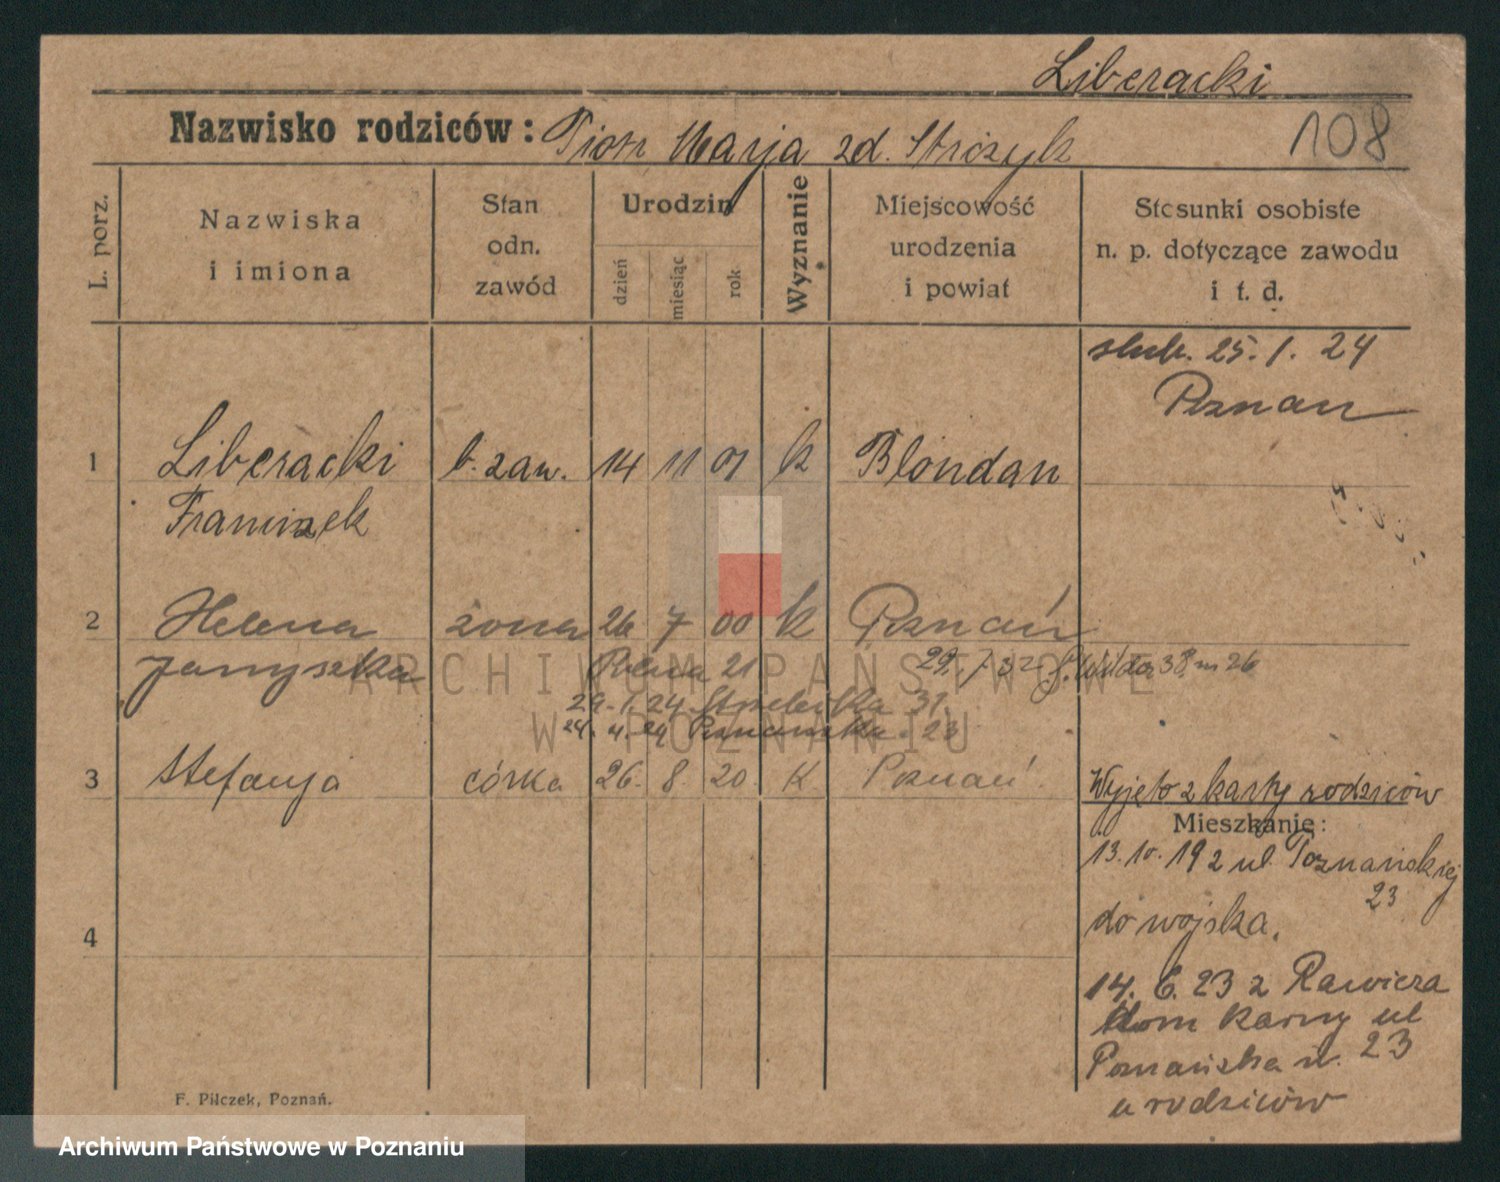 Liberacki
Nazwisko rodziców: Piotr Marja zd. Strózyk
108
L. porz.
Nazwiska
i imiona
Stan
odn.
zawód
Urodzin
dzień
miesiąc
rok
Wyznanie
Miejscowość
urodzenia
i powiat
Stosunki osobiste
n. p. dotyczące zawodu
i t. d.
ślub. 25. 1. 24
Poznań
1 Liberacki b. zaw. 14 11 01 k Blondan
Franciszek
2 Helena żona 26 7 00 k Poznań
Janyszka 21 29. 1 32 G. Wilda 38 m 26
29. 1. 24 Strzelecka 31
24. 4. 24 Poznańska 23
3 Stefanja córka 26. 8. 20. K Poznań
Wyjęto z karty rodziców
Mieszkanie:
13. 10. 192 ul. Poznańskiej
23
do wojska.
4
14. 6. 23 z Rawicza
dom karny ul
Poznańska n. 23
u rodziców
F. Pilczek, Poznań.
ARCHIWUM PAŃSTWOWE
W POZNANIU
Archiwum Państwowe w Poznaniu